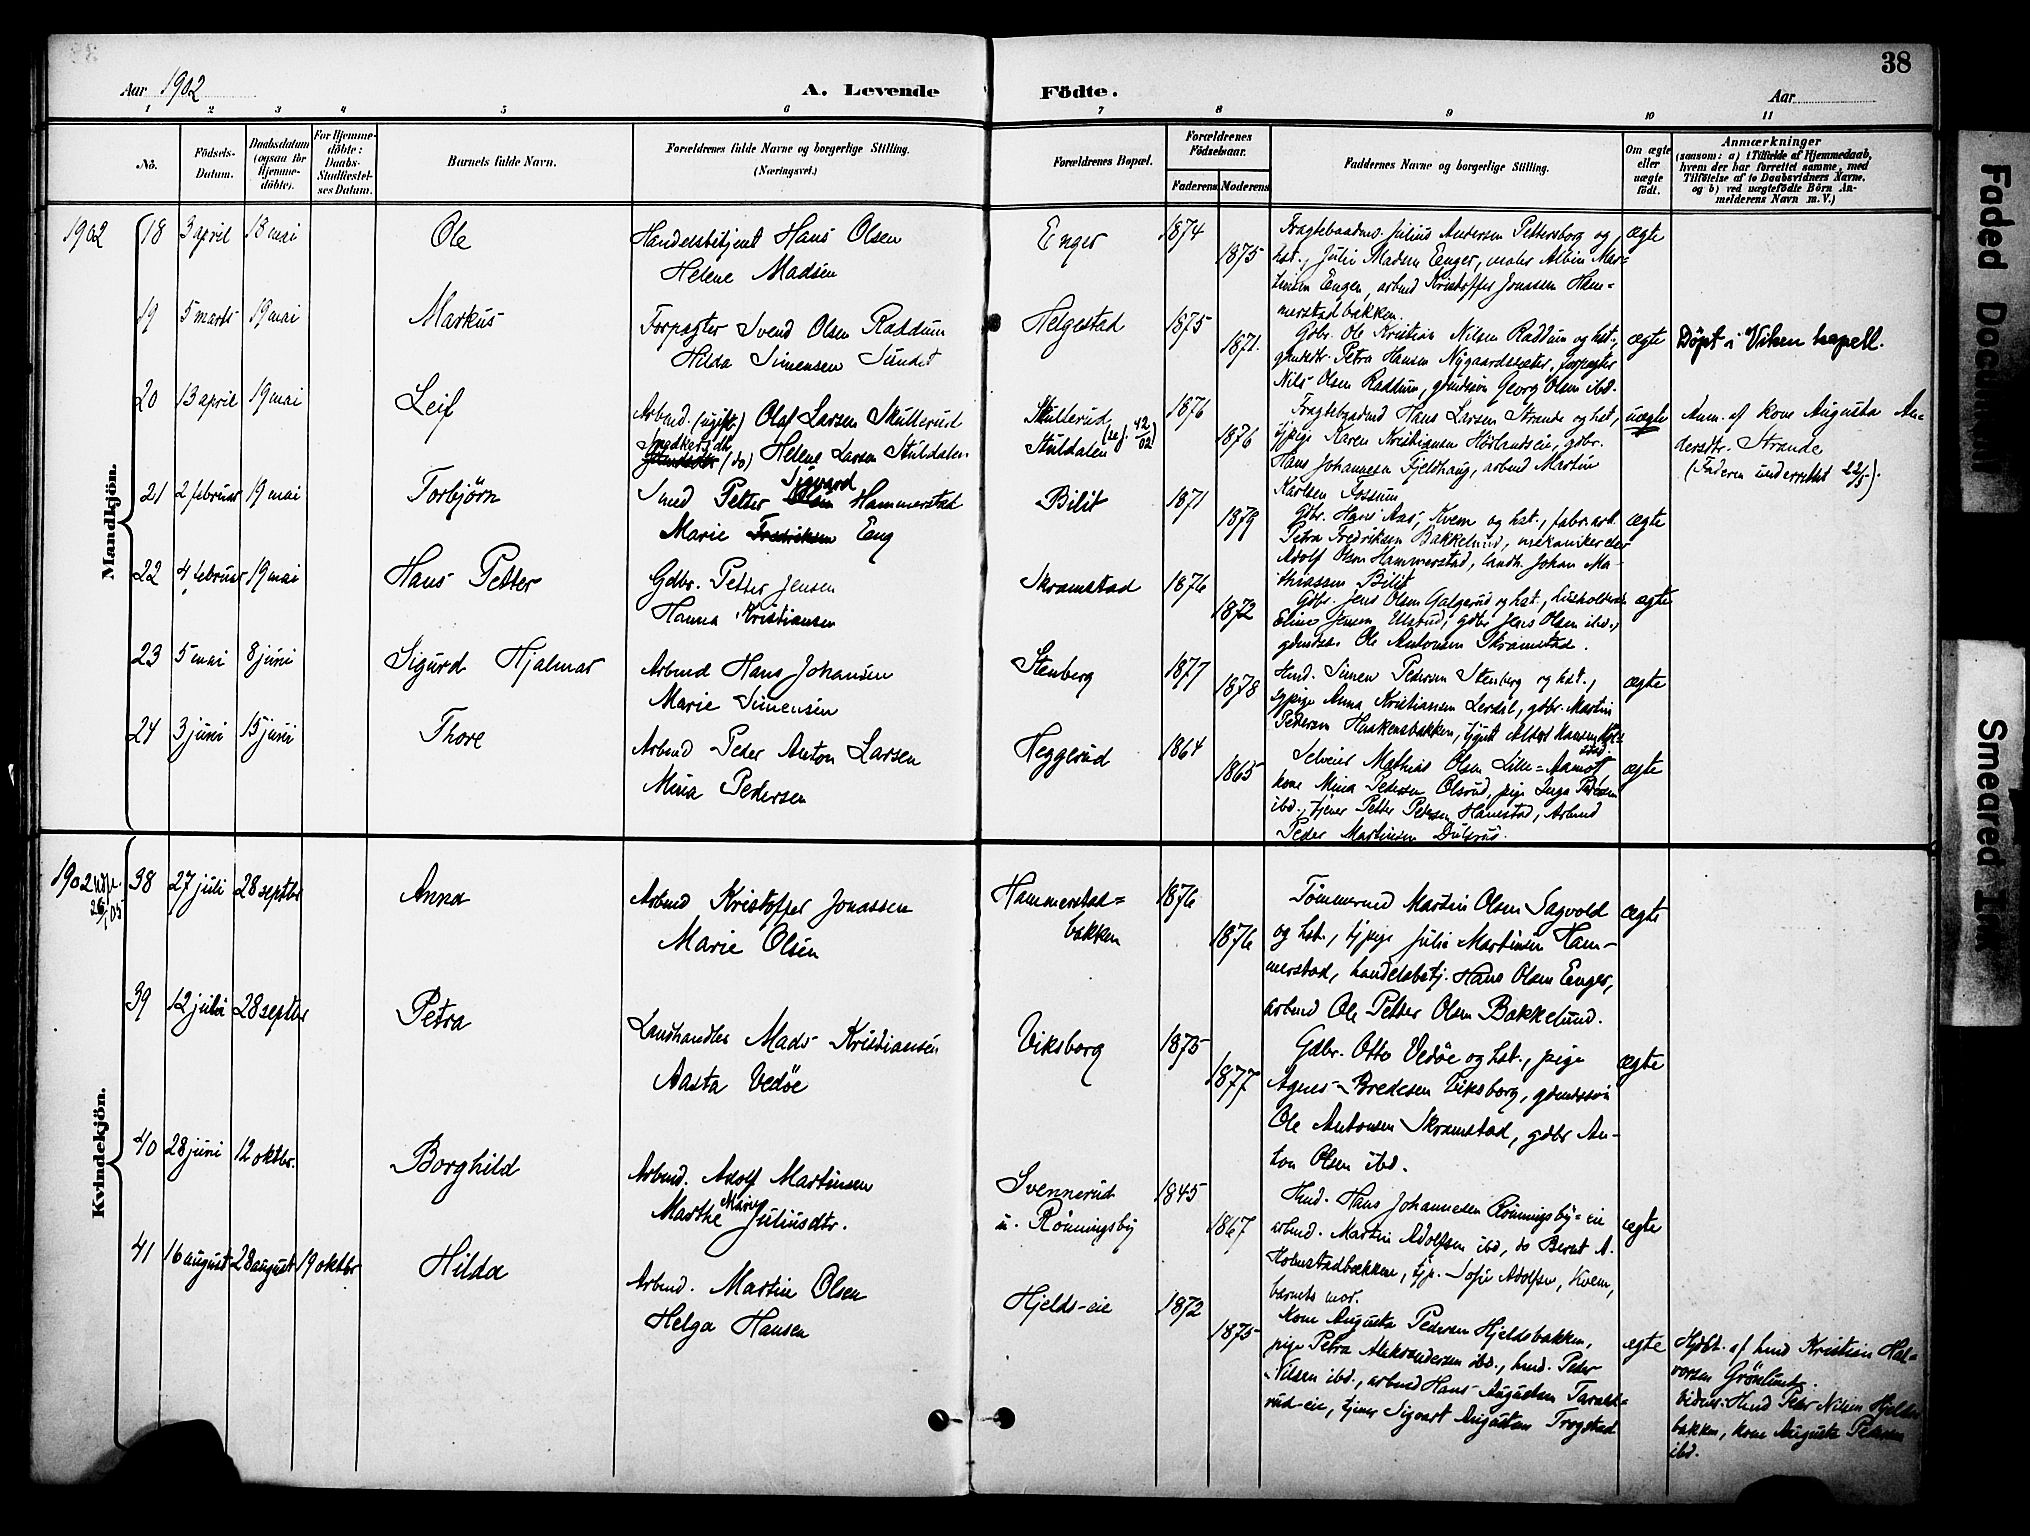 38
Aar 1902
A. Levende Födte.
Aar
1 2 3 4 5 6 7 8 9 10 11
Nö.
Födsels-
Datum.
Daabsdatum
(ogsaa for
Hjemme-
döbte).
For Hjemme-
döbte:
Daabs-
Stadfæstel-
ses Datum.
Barnets fulde Navn.
Forældrenes fulde Navne og borgerlige Stilling.
(Næringsvei.)
Forældrenes Bopæl.
Forældrenes
Födselsaar.
Faderens Moderens
Faddernes Navne og borgerlige Stilling.
Om ægte
eller
uægte
födt.
Anmærkninger
(saasom: a) i Tilfælde af Hjemmedaab,
hvem der har forrettet samme, med
Tilföielse af to Daabsvidners Navne.
og b) ved uægtefödte Börn An-
melderens Navn m. V.)
Mandkjön.
1902 18 3 april 18 mai Ole
Handelsbetjent Hans Olsen
Helene Madsen
Enger 1874
1875
Fragtebaadms. Julius Andersen Pettersborg og
hst., Julie Madsen Enger, maler Albin Mar=
tinsen Engen, arbmd Kristoffer Jonassen Ham=
merstadbakken.
ægte
19 5 marts 19 mai Markus
Forpagter Svend Olsen Raddum
Hilda Simensen Sundet
Helgestad 1875
1871.
Gdbr. Ole Kristian Nilsen Raddum og hst.,
gmdstr. Petra Hansen Nygaardssæter, forpagter
Nils Olsen Raddum, gmdssøn Georg Olsen ibd.
ægte
Døpt i Viken kapell.
20 13 april 19 mai Leif
Arbmd. (ugift) Olaf Larsen Skullerud
(do) Helene Larsen Stuldalen
Skullerud
Stuldalen (se j. 42/02)
1876
1876
Fragtebaadmd Hans Larsen Strande og hst,
tjpige Karen Kristiansen Hørlandseie, gdbr.
Hans Johannesen Fjeldhaug, arbmd Martin
Karlsen Fossum
uægte
Anm. af kone Augusta An-
dersdtr. Strande
(Faderen underrettet 22/5).
21 2 februar 19 mai Torbjørn
Smed Petter Sigvard Hammerstad
Marie Fredriksen Eng
Bilit 1871
1879
Gdbr. Hans Aas, Kvem og hst., fabr. arb.
Petra Fredriksen Bakkelund, mekaniker
Adolf Olsen Hammerstad, landh. Johan Ma-
thiassen Bilit
ægte
22 4 februar 19 mai Hans Petter
Gdbr. Petter Jensen
Hanna Kristiansen
Skramstad 1876
1872
Gdbr. Jens Olsen Galgerud og hst., husholderske
Eline Jensen Ulsrud, gdbr Jens Olsen ibd.,
gdmdsøn Ole Antonsen Skramstad.
ægte
23 5 mai 8 juni Sigurd Hjalmar
Arbmd Hans Johansen
Marie Simensen
Stenberg 1877
1878
Hmd. Simen Pedersen Stenberg og hst.,
sypige Anna Kristiansen Lerdal, gdbr. Martin
Pedersen Haakensbakken, tjgut Albert Hansen
ægte
24 3 juni 15 juni Thore
Arbmd Peder Anton Larsen
Mina Pedersen
Heggerud 1864
1865
Selveier Mathias Olsen Lille=Aamot
kone Mina Pedersen Olsrud, pige Inga Pedersen
ibd., tjener Petter Pedersen Hanestad, Arbmd
Peder Martinsen Dulsrud.
ægte
Kvindekjön.
1902 38 27 juli 28 septbr Anna
26/1 05
Arbmd Kristoffer Jonassen
Marie Olsen
Hammerstad=
bakken
1876
1876
Tømmermd Martin Olsen Sagvold
og hst., tjpige Julie Martinsen Ham-
merstad, handelsbetj. Hans Olsen Enger,
arbmd Ole Petter Olsen Bakkelund.
ægte
39 12 juli 28 septbr Petra
Landhandler Mads Kristiansen
Aasta Vedøe
Viksborg 1875
1877
Gdbr. Otto Vedøe og hst., pige
Agnes Bredesen Viksborg, gdmdssøn
Ole Antonsen Skramstad, gdbr An-
ton Olsen ibd.
ægte
40 28 juni 12 oktbr. Borghild
Arbmd. Adolf Martinsen
Marthe Marie Juliusdtr.
Svennerud
u. Rönningsby
1845
1867
Hmd. Hans Johannesen Rönningsby=eie
arbmd. Martin Adolfsen ibd, do Bernt A.
Holmstadbakken, tjp. Sofie Adolfsen, Kvem,
barnets mor.
ægte
41 16 august 28 august 19 oktbr Hilda
Arbmd. Martin Olsen
Helga Hansen
Hjelds-eie 1872
1875
Kone Augusta Pedersen Hjeldsbakken,
pige Petra Aleksandersen ibd., hmd. Peder
Nilsen ibd., arbmd Hans Augustsen Taralds-
rud-eie, tjener Sigvart Augustsen Trogstad
ægte
Hjdbt. af hmd Kristian Hal=
vorsen Grönlund.
Vidner: Hmd Peder Nilsen Hjelds-
bakken, kone Augusta Pedersen
ibd.
Faded Document
Smeared Ink